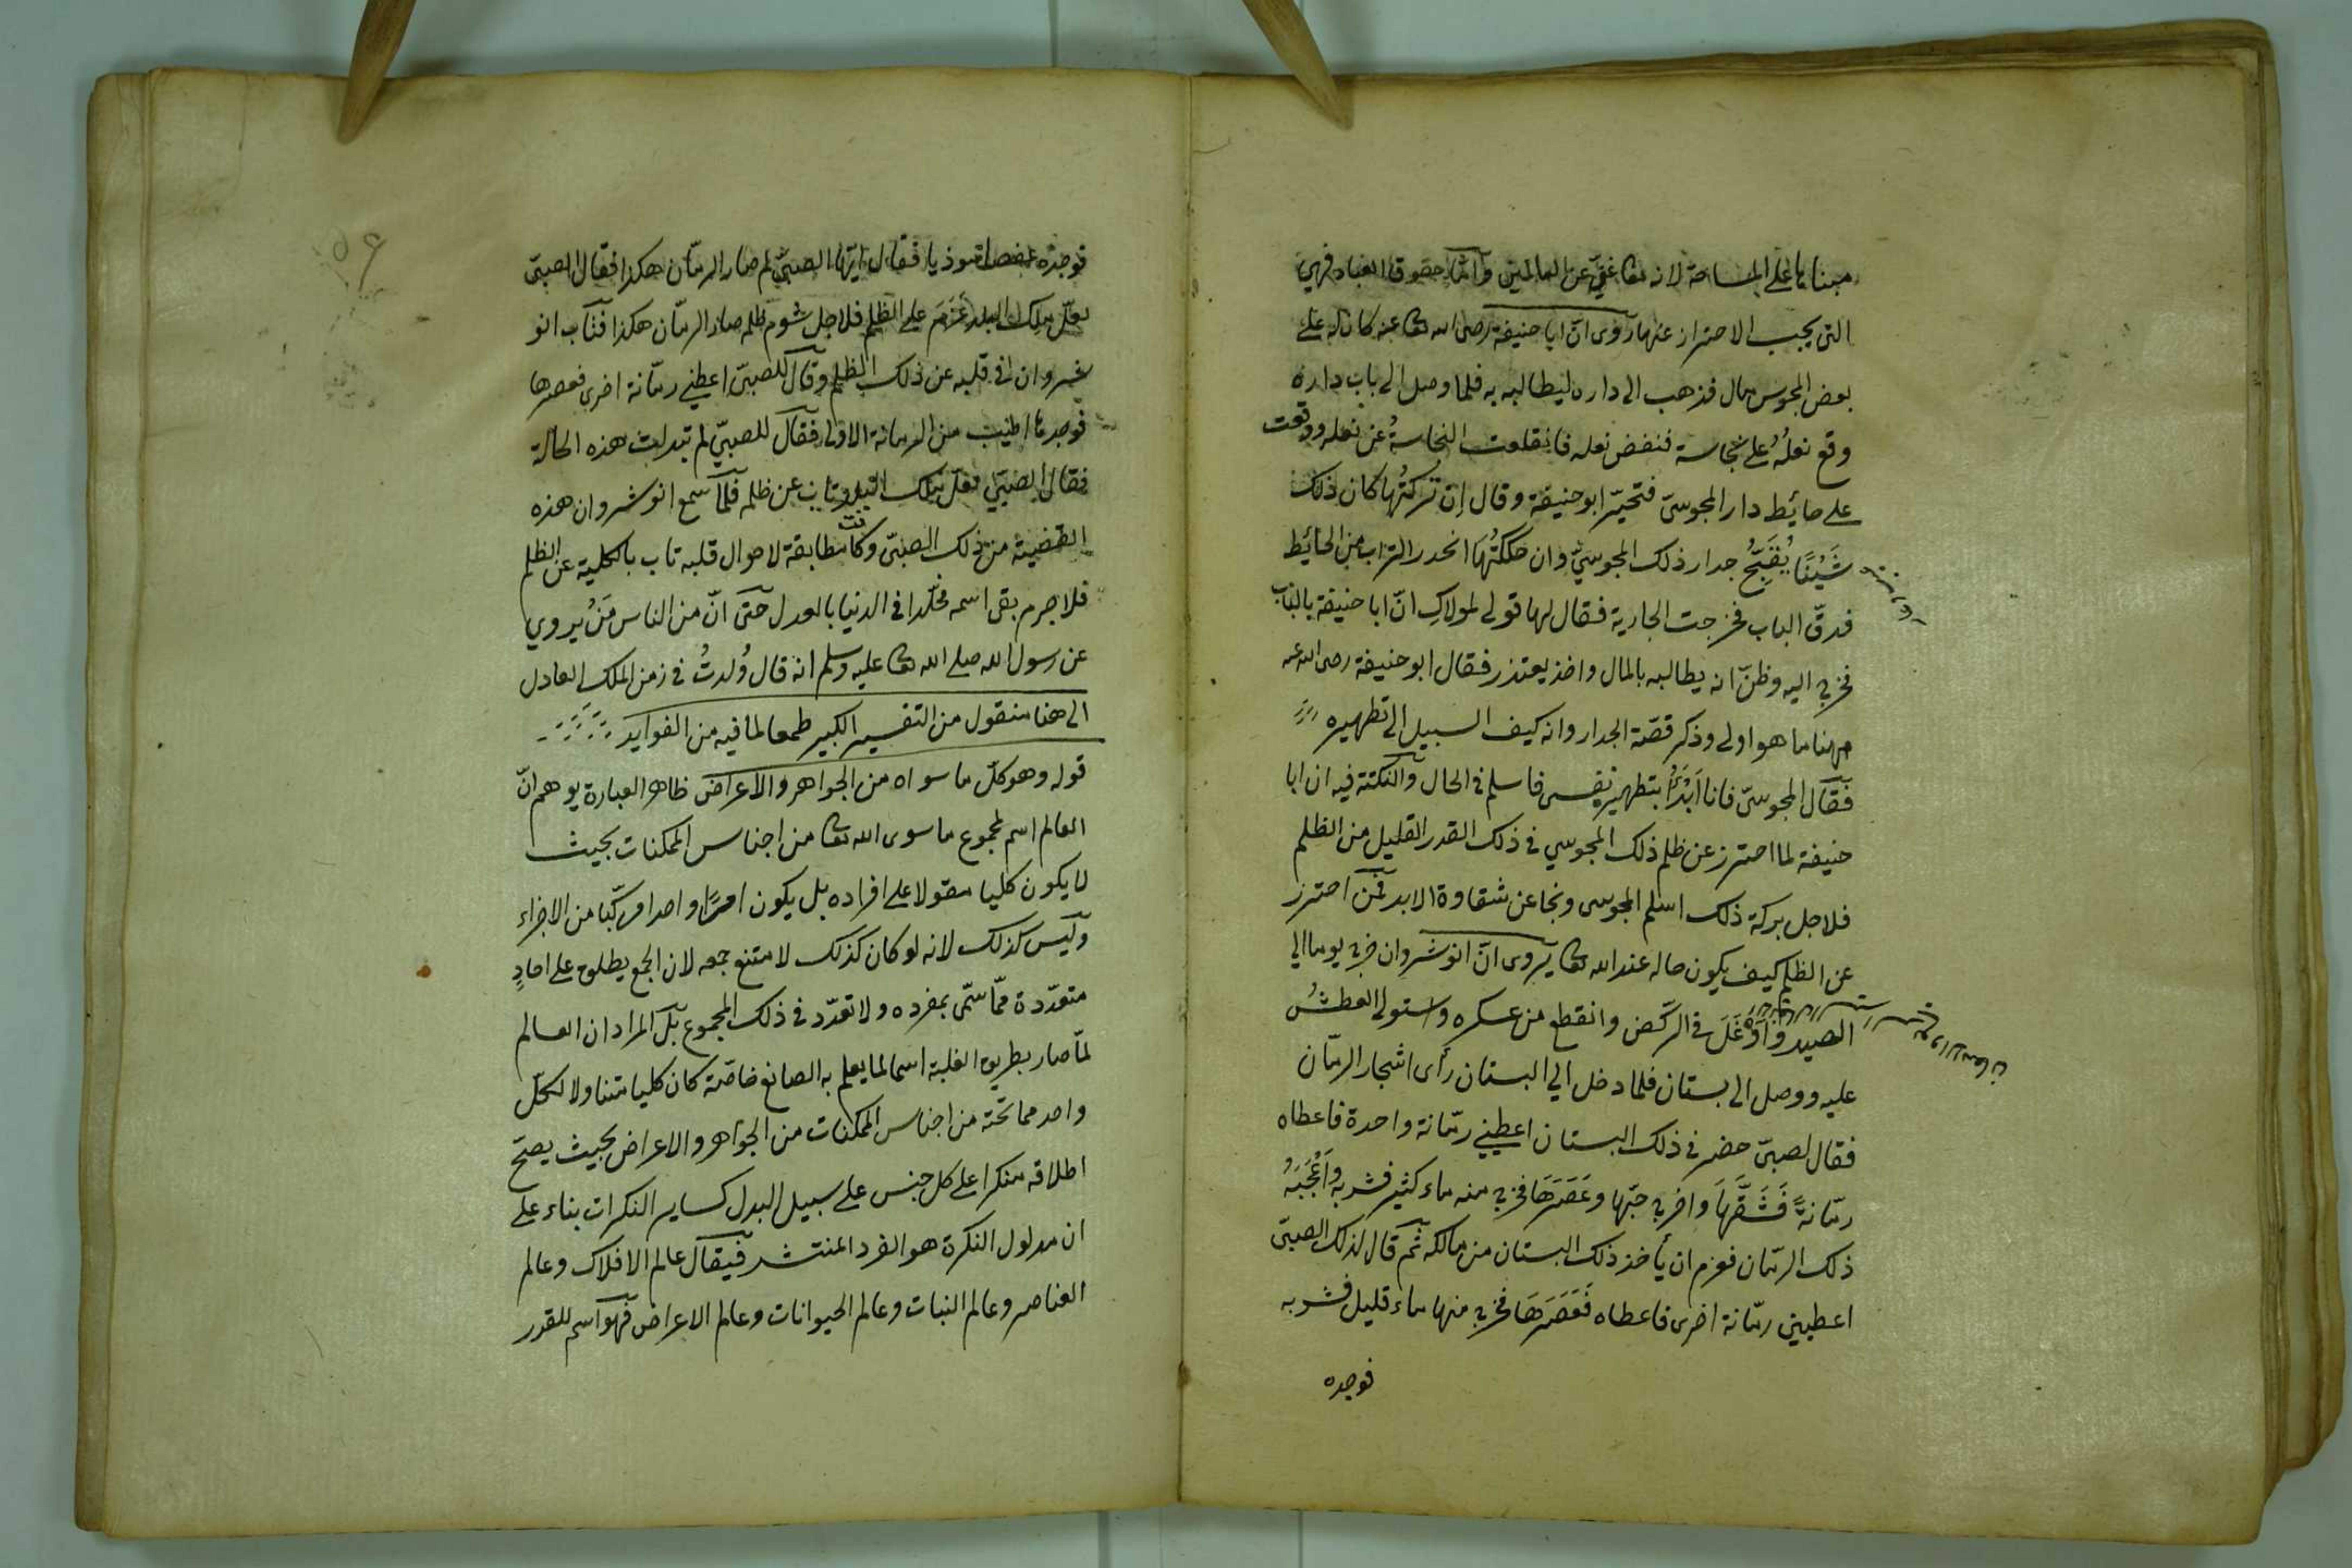 مبناها على المسامحة لانه تعا غني عن العالمين وأما حقوق العباد فهي
التى يجب الاحتراز عنها روى ان ابا حنيفة رضى الله تعا عنه كان له على
بعض المجوس مال فذهب الى داره ليطالبه به فلما وصل الى باب داره
وقع نعلُهُ على نجاسة فنفض نعله فانقلعت النجاسةُ عن نعله ووقعت
على حائيط دار المجوسىّ فتحيّر ابو حنيفة وقال اِن تركتُها كان ذلك
شَيْئًا يُقَبِّحُ جدار ذلك المجوسيّ وان حككتُهَا انحدر التراب من الحائيط
فدقّ الباب فخرجت الجارية فقال لها قولى لمولاكِ انّ ابا حنيفة بالباب
فخرج اليه وظنّ انه يطالبه بالمال واخذ يعتذر فقال ابو حنيفة رضى الله عنه
ههنا ما هو اولى وذكر قصّة الجدار وانه كيف السبيل الى تطهيره
فقال المجوسىّ فانا اَبْدَأُ بتطهير نفسى فاسلم فى الحال والنكتة فيه ان ابا
حنيفة لما احترز عن ظلم ذلك المجوسي فى ذلك القدر القليل من الظلم
فلاجل بركة ذلك اسلم المجوسى ونجا عن شقاوة الابد فمن احترز
عن الظلم كيف يكون حاله عند الله تعا يروى انّ انوشروان خرج يوما الي
الصيد وَاَوْغَلَ فى الركض وانقطع من عسكره واستولى العطشُ
عليه ووصل الى بستان فلما دخل الي البستان رأى اشجار الرمّان
فقال لصبىّ حضر فى ذلك البستان اعطينى رمّانة واحدة فاعطاه
رمّانةً فَشَقَّهَا واخرج حبّها وعَصَرَهَا فخرج منه ماء كثير فشربه وَاَعْجَبَهُ
ذلك الرمّان فعزم ان يأخذ ذلك البستان من مالكه ثم قال لذلك الصبىّ
اعطيني رمّانة اخرى فاعطاه فَعَصَرَهَا فخرج منها ماء قليل فشربه
فوجده
فوجده عفصا موذيا فقال ايّها الصبىّ لم صار الرمّان هكذا فقال الصبىّ
لعلّ ملك البلد عَزَمَ على الظلم فلاجل شوم ظلمه صار الرمّان هكذا فتاب انو
شروان فى قلبه عن ذلك الظلم وقال للصبىّ اعطينى رمّانة اخرى فعصرها
فوجدها اطيب من الرمانة الاولى فقال للصبىّ لم تبدلت هذه الحالة
فقال الصبىّ لعلّ ملك البلد تاب عن ظلمه فلما سمع انوشروان هذه
القضية من ذلك الصبىّ وكانت مطابقة لاحوال قلبه تاب بالكلية عن الظلم
فلا جرم بقى اسمه مخلّدا فى الدنيا بالعدل حتى انّ من الناس مَنْ يروي
عن رسول الله صلى الله تعا عليه وسلم انه قال وُلدتُ فى زمن الملك العادل
الى هنا منقول من التفسير الكبير طمعا لما فيه من الفوايد
قوله وهو كلّ ما سواه من الجواهر والاعراض ظاهر العبارة يوهم انّ
العالم اسم لمجموع ما سوى الله تعا من اجناس الممكنات بحيث
لا يكون كليا مقولا على افراده بل يكون امرًا واحدا مركّبا من الاجزاء
وليس كذلك لانه لو كان كذلك لامتنع جمعه لان الجمع يطلق على احادٍ
متعدّدة ممّا سمّى بمفرده ولا تعدّد فى ذلك المجموع بل المراد ان العالم
لمّا صار بطريق الغلبة اسما لما يعلم به الصانع خاصّة كان كليا متناولا لكلّ
واحد مما تحته من اجناس الممكنات من الجواهر والاعراض بحيث يصحّ
اطلاقه منكرا على كل جنس على سبيل البدل كساير النكرات بناء على
ان مدلول النكرة هو الفرد المنتشر فيقال عالم الافلاك وعالم
العناصر وعالم النبات وعالم الحيوانات وعالم الاعراض فهو اسم للقدر